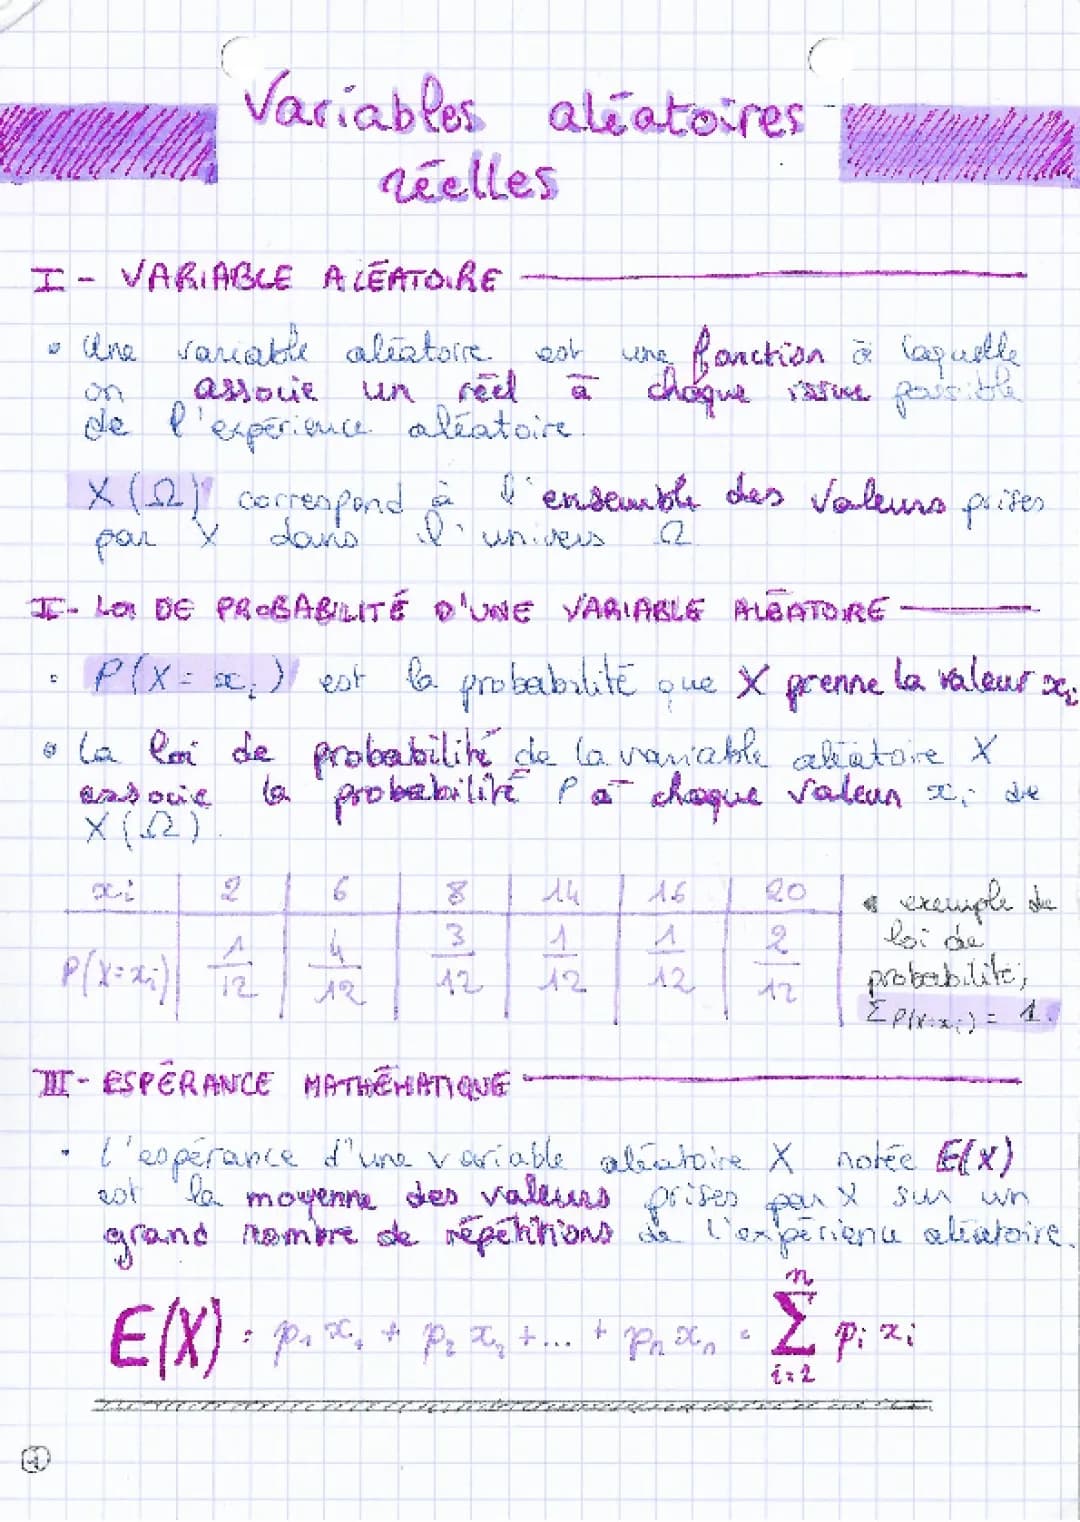 Variables aléatoires
réelles
I - VARIABLE ALÉATOIRE
• Une variable aléatoire est une fonction à laquelle
on associe un réel à chaque issue possible
de l'expérience aléatoire.
X(Ω) correspond à l'ensemble des valeurs prises
par X dans l'univers Ω
II - LOI DE PROBABILITÉ D'UNE VARIABLE ALÉATOIRE
• P(X = xi) est la probabilité que X prenne la valeur xi
• La loi de probabilité de la variable aléatoire X
associe la probabilité P à chaque valeur xi de
X(Ω).
xi 2 6 8 14 16 20
P(X=xi) 1/12 4/12 3/12 1/12 1/12 2/12
• exemple de
loi de
probabilité,
Σ P(X=xi) = 1.
III - ESPÉRANCE MATHÉMATIQUE
• L'espérance d'une variable aléatoire X notée E(X)
est la moyenne des valeurs prises par X sur un
grand nombre de répétitions de l'expérience aléatoire.
n
E(X) = p1 x1 + p2 x2 + ... + pn xn = Σ pi xi
i=2
1